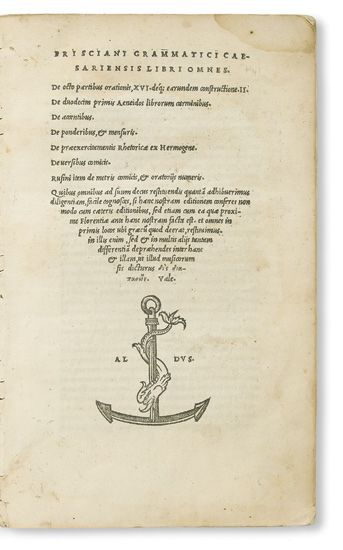 PRISCIANI GRAMMATICI CAE-
SARIENSIS LIBRI OMNES.
De octo partibus orationis, XVI. deq; earundem constructione. II.
De duodecim primis Aeneidos librorum carminibus.
De accentibus.
De ponderibus, & mensuris.
De praeexercitamentis Rhetoricæ ex Hermogene.
De uersibus comicis.
Rufini item de metris comicis, & oratorijs numeris.
Quibus omnibus ad suum decus restituendis quantā adhibuerimus
diligentiam, facile cognosces, si hanc nostram editionem conferes non
modo cum cæteris editionibus, sed etiam cum ea quæ proxi-
me Florentiæ ante hanc nostram facta est. et omnes in
primis locos ubi græcū quod deerat, restituimus.
in illis enim, sed & in multis alijs tantam
differentiā depræhendes inter hanc
& illam, ut illud musicorum
sis dicturus δὶς διὰ
πασῶν. Vale.
AL DVS.